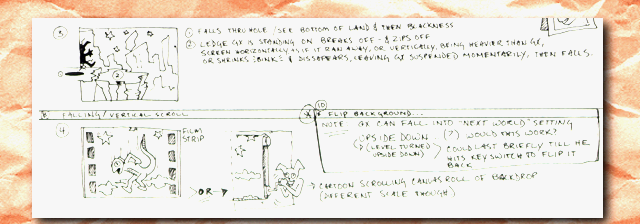 3
① FALLS THRU HOLE / SEE BOTTOM OF LAND & THEN BLACKNESS
② LEDGE GX IS STANDING ON BREAKS OFF - & ZIPS OFF
SCREEN HORIZONTALLY AS IF IT RAN AWAY, OR VERTICALLY, BEING HEAVIER THAN GX,
OR SHRINKS :BINK: & DISSAPEARS, LEAVING GX SUSPENDED MOMENTARILY, THEN FALLS.
2
B FALLING/VERTICAL SCROLL
4
FILM
STRIP
-OR→
10
FLIP BACKGROUND...
NOTE GX CAN FALL INTO "NEXT WORLD" SETTING
UPSIDE DOWN... (?) WOULD THIS WORK?
(LEVEL TURNED
UPSIDE DOWN)
COULD LAST BRIEFLY TILL HE
HITS KEY SWITCH TO FLIP IT
BACK
CARTOON SCROLLING CANVAS ROLL OF BACKDROP
(DIFFERENT SCALE THOUGH)